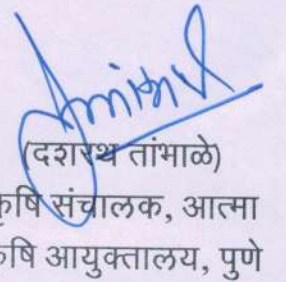 (दशरथ तांभाळे)
कृषि संचालक, आत्मा
कृषि आयुक्तालय, पुणे